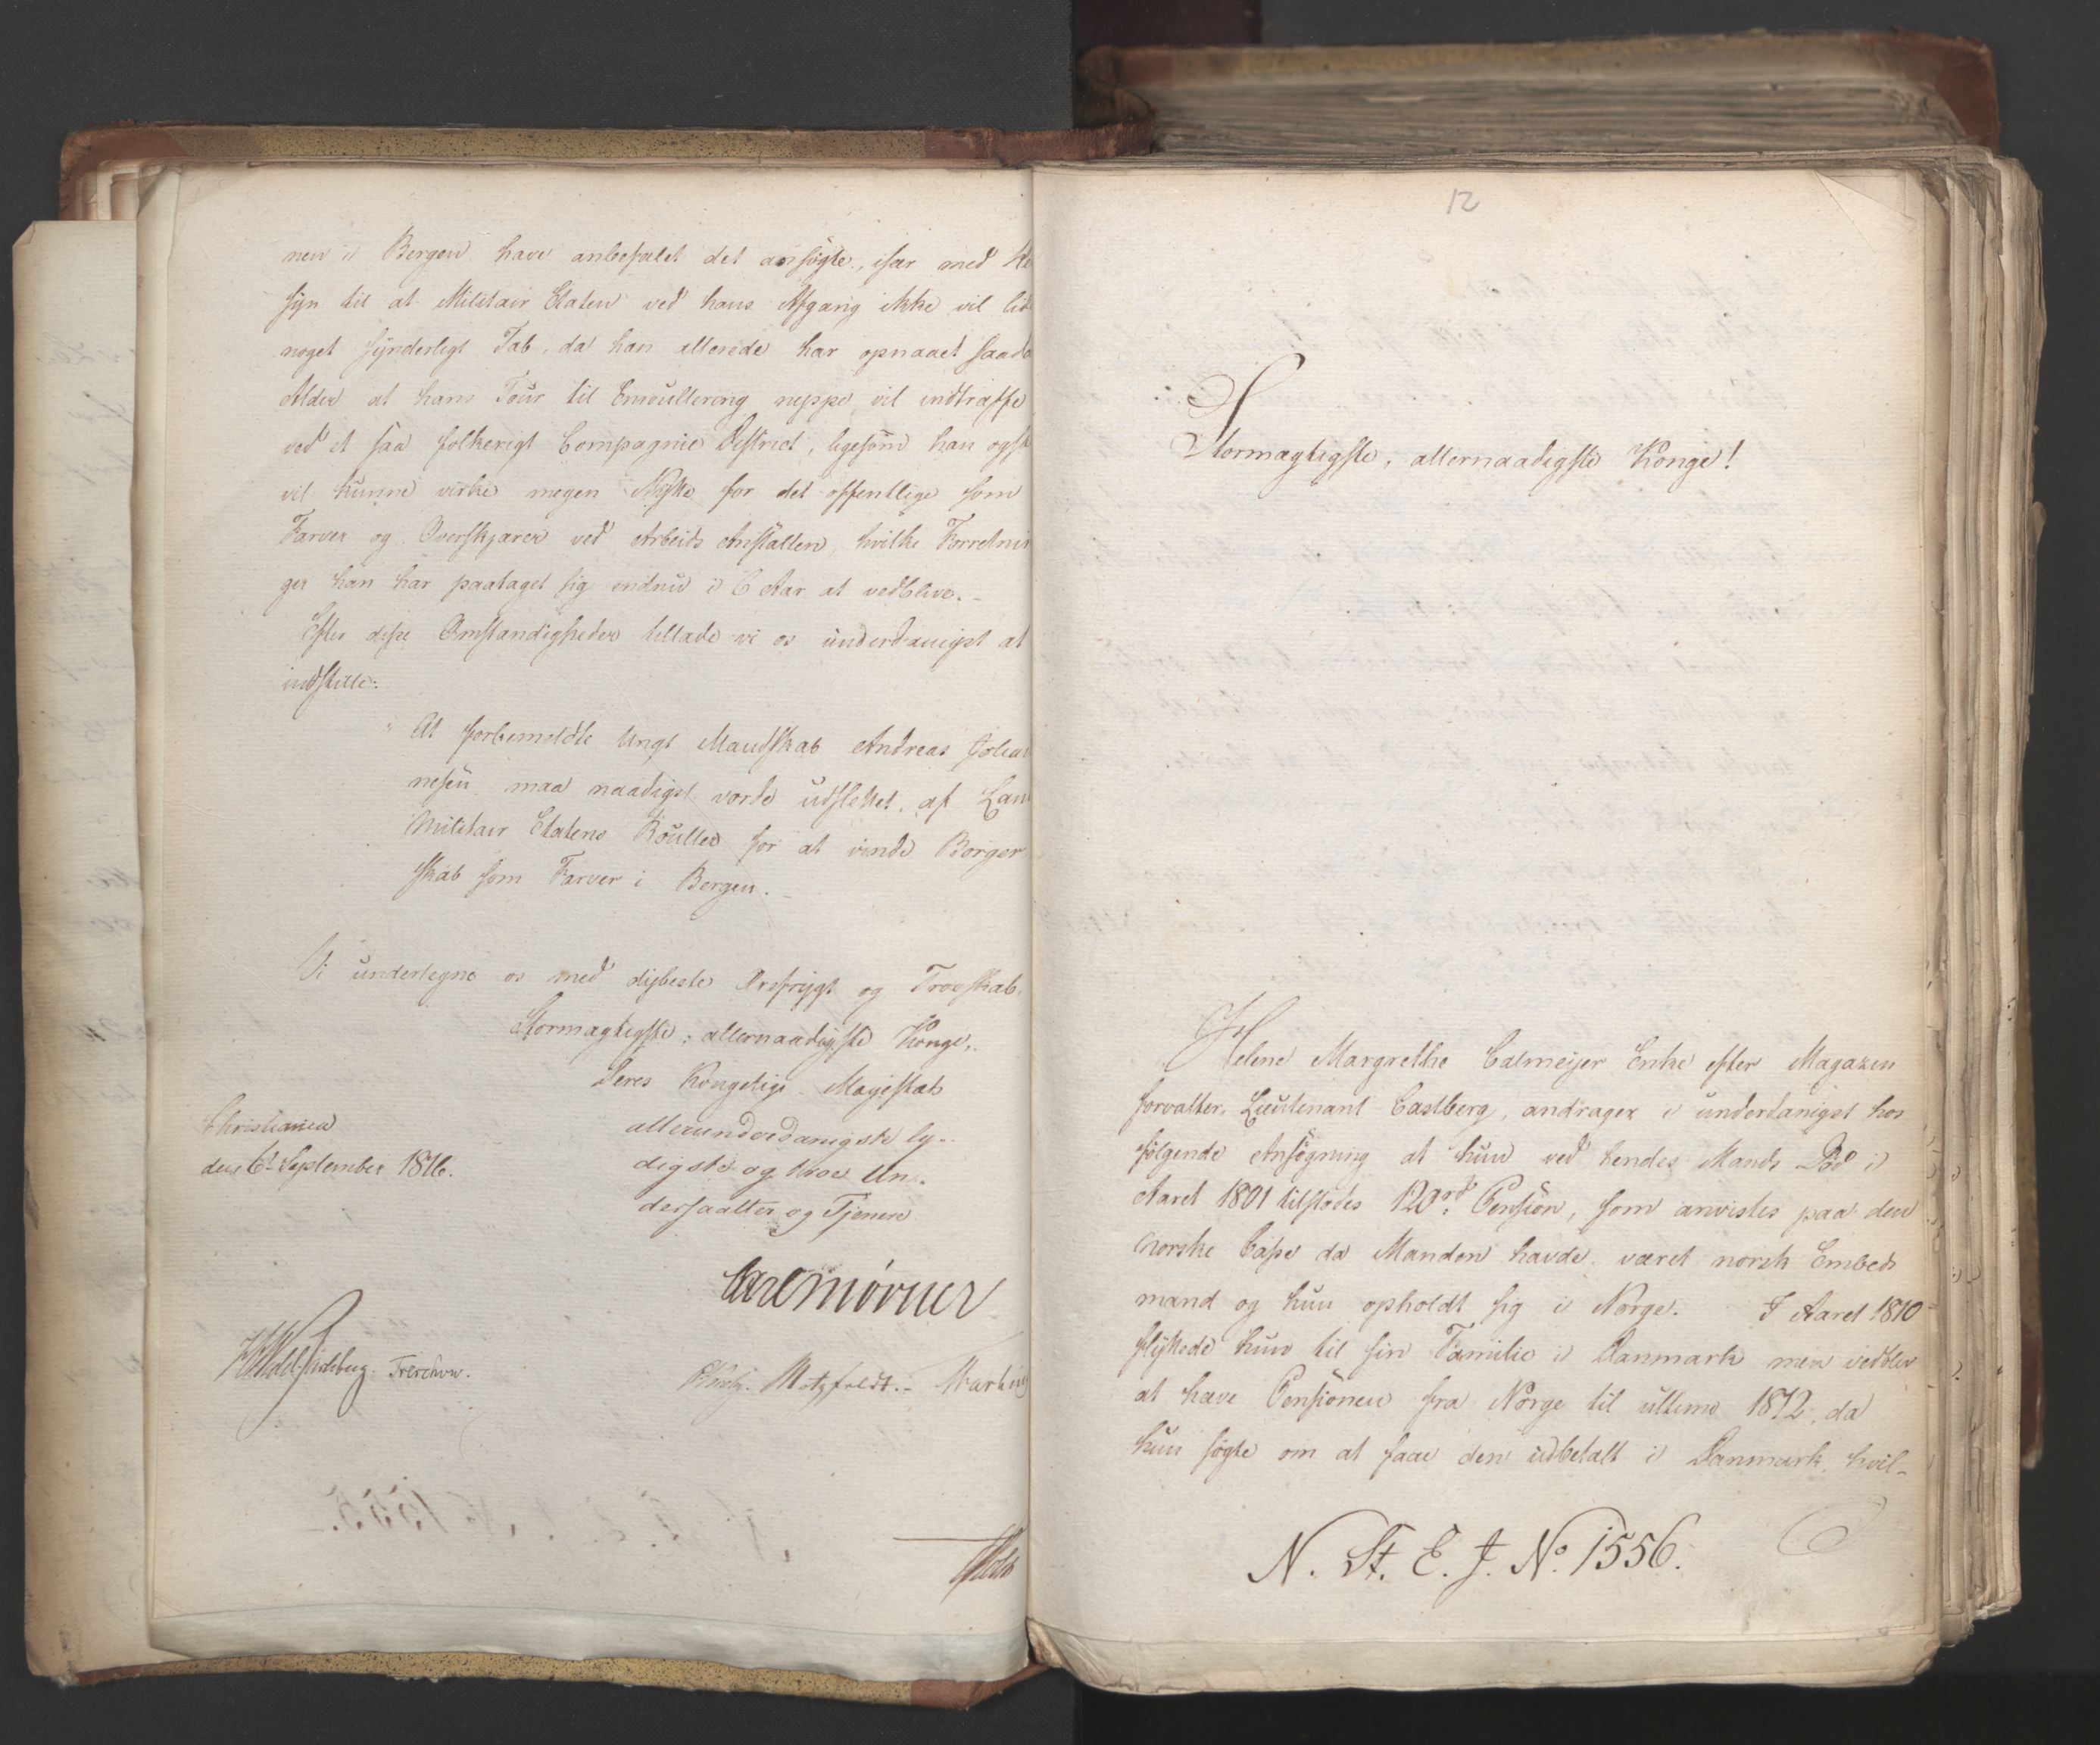 nen i Bergen have anbefalet det ansøgte, især med He
syn til at Militair Etaten ved hans Afgang ikke vil lide
noget synderligt Tab, da han allerede har opnaaet saada
Alder at hans Tour til Enroullering neppe vil indtræffe
ved et saa folkerigt Compagnie District, ligesom han ogsa
vil kunne virke megen Nytte for det offentlige som
Farver og Overskjærer ved Arbeids Anstalten, hvilke Forretnin
ger han har paataget sig endnu i 6 Aar at vedblive.
Efter disse Omstændigheder tillade vi os underdanigst at
indstille:
At forbemeldte Ungt Mandskab Andreas Johan
nesen maa naadigst vorde udslettet af Land
Militair Etatens Roulles for at vinde Borger
skab som Farver i Bergen.
Vi undertegne os med dybeste Ærefrygt og Troeskab.
Stormægtigste, allernaadigste Konge,
Deres Kongelige Majestæts
allerunderdanigste ly-
digste og troe Un-
dersaatter og Tjenere
Christiania
den 6te September 1816.
Carl Mörner
Treschow.
Motzfeldt.
Holst
12
Stormægtigste, allernaadigste Konge!
Helene Margrethe Calmeijer Enke efter Magazin
forvalter, Lieutenant Castberg, andrager i underdanigst hos
følgende Ansøgning at hun ved hendes Mands Død i
Aaret 1801 tilstodes 120 rd. Pension, som anvistes paa den
norske Casse da Manden havde været norsk Embeds
mand og hun opholdt sig i Norge. I Aaret 1810
flyttede hun til sin Familie i Danmark men vedblev
at hæve Pensionen fra Norge til ultimo 1812, da
hun søgte om at faae den udbetalt i Danmark, hvil-
N. St. E. J. No. 1556.